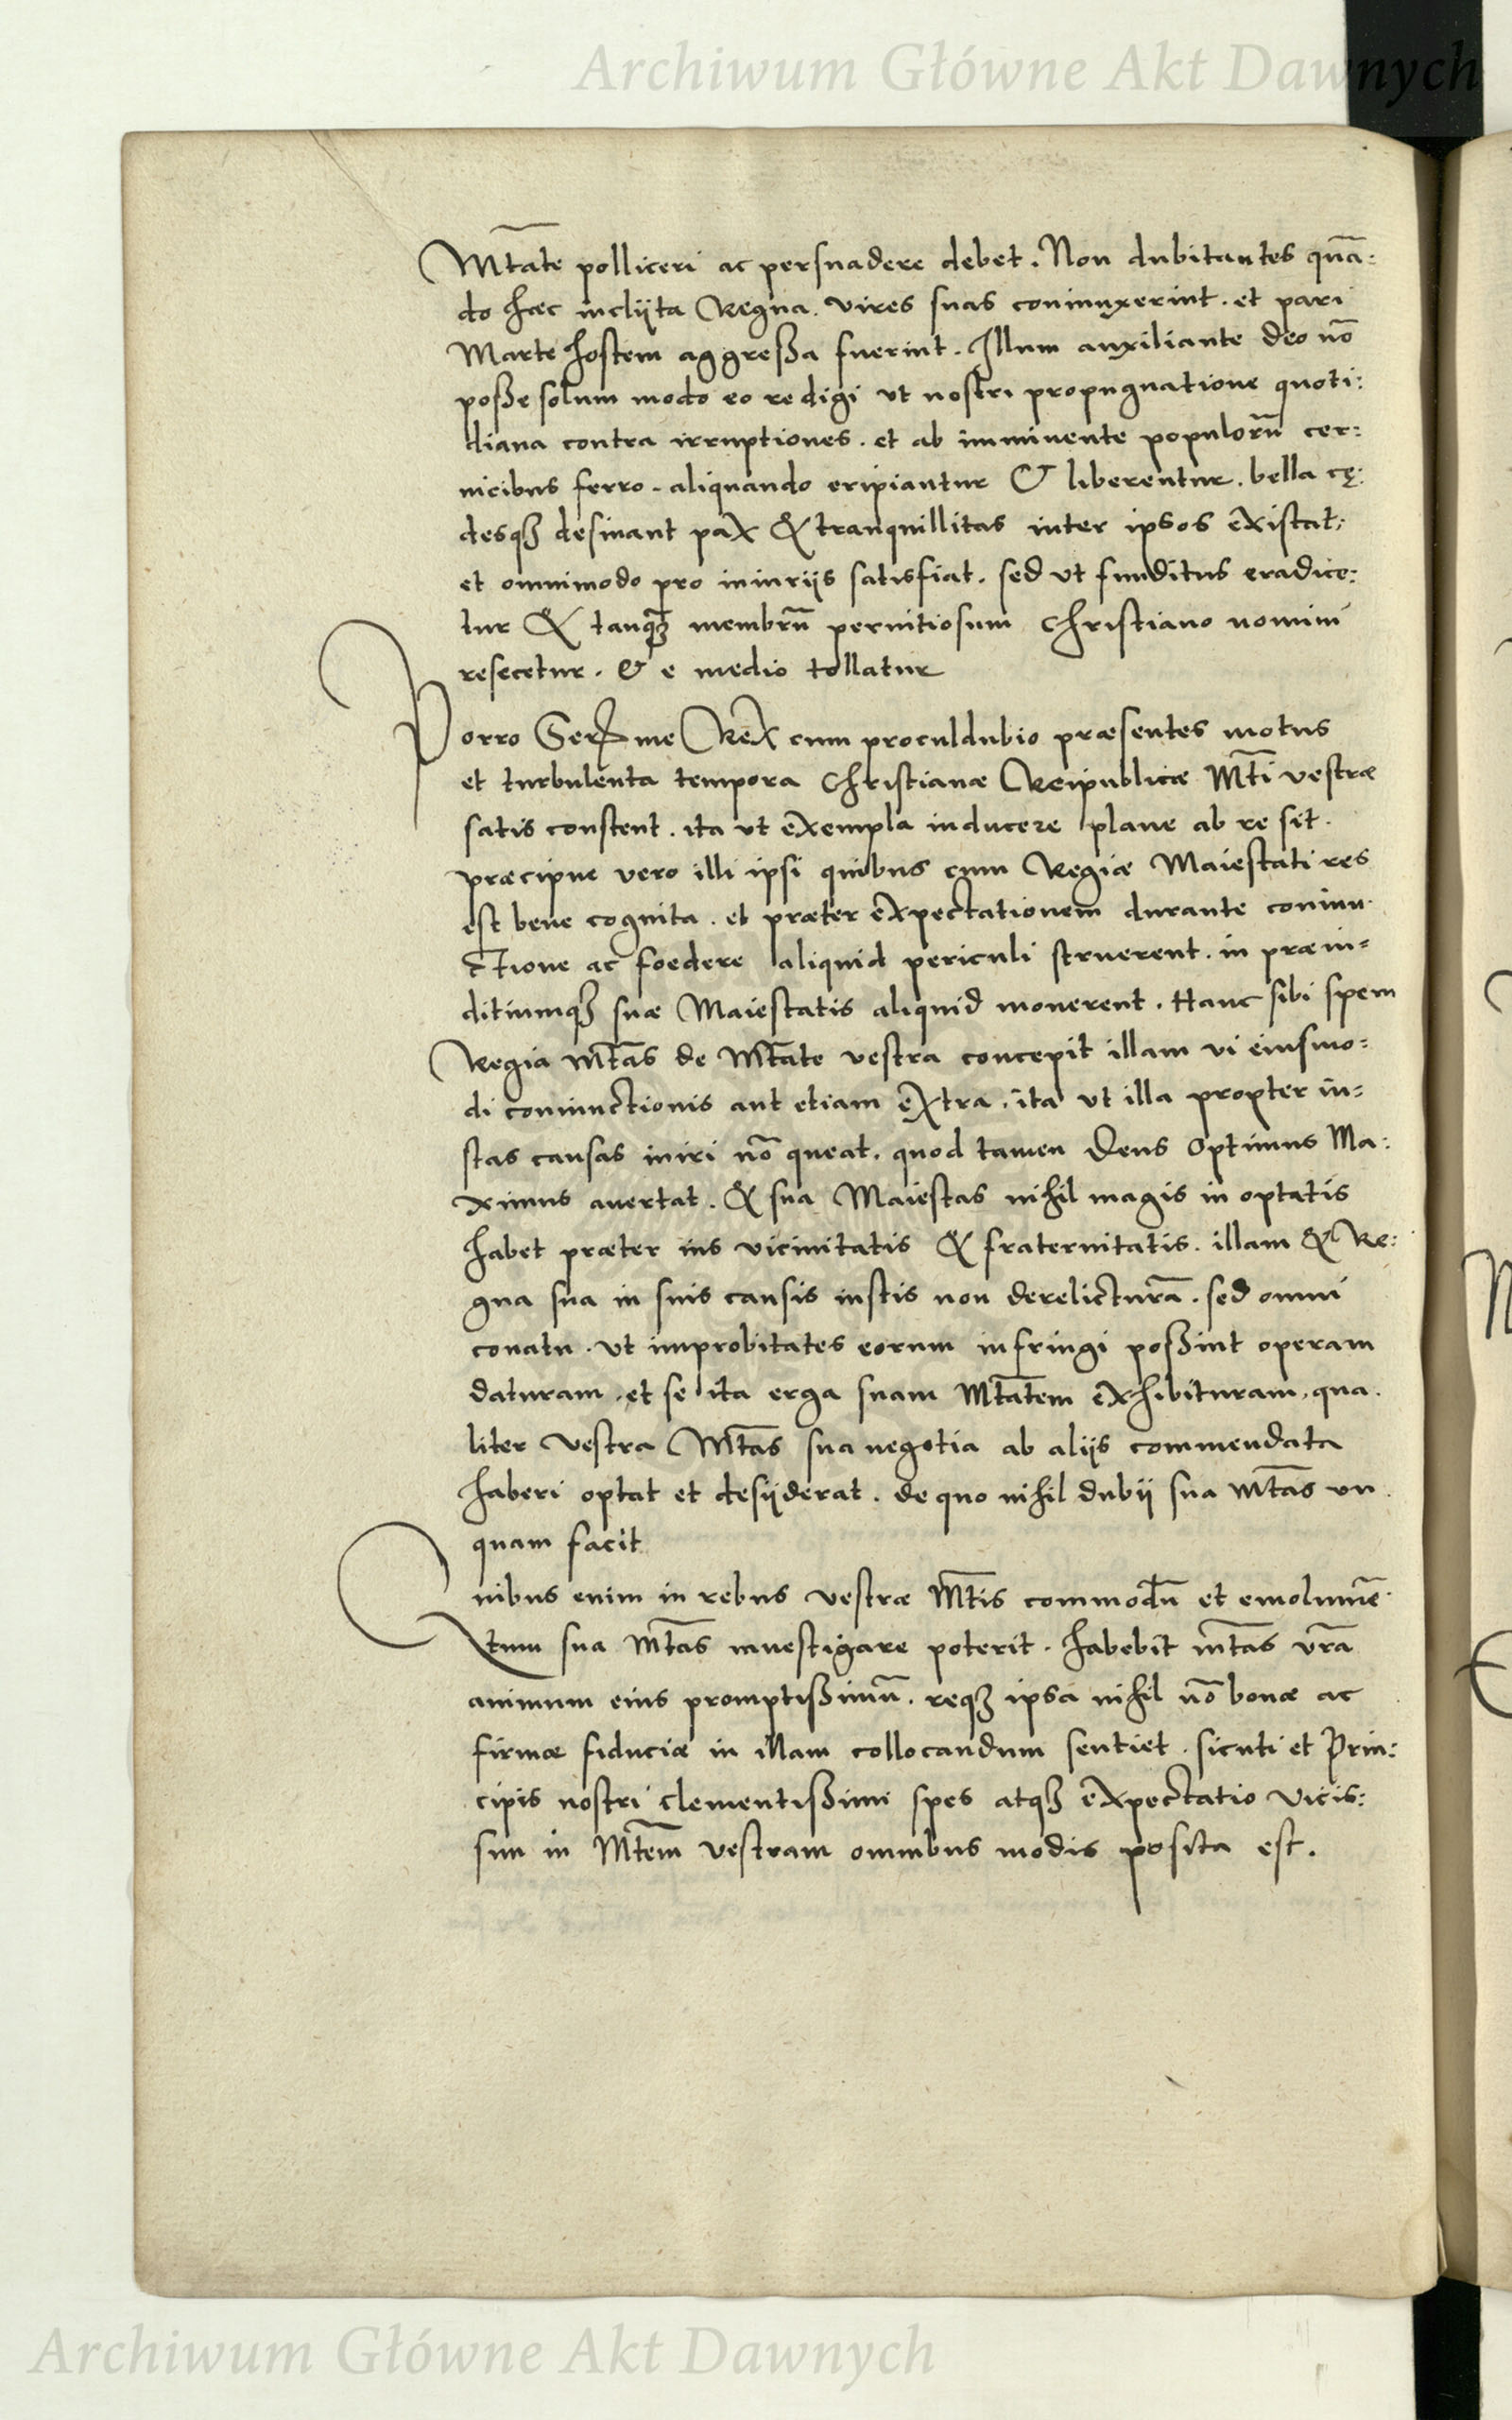 Archiwum Główne Akt Dawnych
Mtāte polliceri ac persuadere debet. Non dubitantes quā:
do haec inclijta Regna. vires suas coniuuxerint. et pari
Marte hostem aggreßa fuerint. Illum auxiliante deo nō
poße solum modo eo redigi ut nostri propugnatione quoti:
diana contra irruptiones. et ab imminente populorū cer:
uicibus ferro. aliquando eripiantur & liberentur. bella cę:
desqꝫ desinant pax & tranquillitas inter ipsos existat,
et omnimodo pro iniurijs satisfiat. sed ut funditus eradice:
tur & tanqꝫ membrū pernitiosum Christiano nomini
resecetur. & e medio tollatur
Porro Serme Rex cum proculdubio præsentes motus
et turbulenta tempora Christianæ Reipublicæ Mti vestræ
satis constent. ita ut exempla inducere plane ab re sit.
præcipue vero illi ipsi quibus cum Regiæ Maiestati res
est bene cognita. et præter expectationem durante coniun.
ctione ac foedere aliquid periculi struerent. in præiu=
ditiumqꝫ suæ Maiestatis aliquid mouerent. Hanc sibi spem
Regia Mtās de Mtāte vestra concepit illam vi eiusmo=
di coniunctionis aut etiam extra. ita ut illa propter iu=
stas causas iniri nō queat. quod tamen Deus Optimus Ma:
ximus auertat. & sua Maiestas nihil magis in optatis
habet præter ius vicinitatis & fraternitatis. illam & Re:
gna sua in suis causis iustis non derelicturā. sed omni
conatu. ut improbitates eorum infringi poßint operam
daturam. et se ita erga suam Mtātem exhibituram, qua.
liter vestra Mtās sua negotia ab alijs commendata
haberi optat et desijderat. de quo nihil dubij sua Mtās un.
quam facit
Quibus enim in rebus vestræ Mtis commodū et emolumē.
tum sua Mtās inuestigare poterit. habebit mtās vrā
animum eius promptißimū. reqꝫ ipsa nihil nō bonæ ac
firmæ fiduciæ in illam collocandum sentiet. sicuti et Prin:
cipis nostri clementißimi spes atqꝫ expectatio vicis:
sim in Mtem vestram omnibus modis posita est.
Archiwum Główne Akt Dawnych